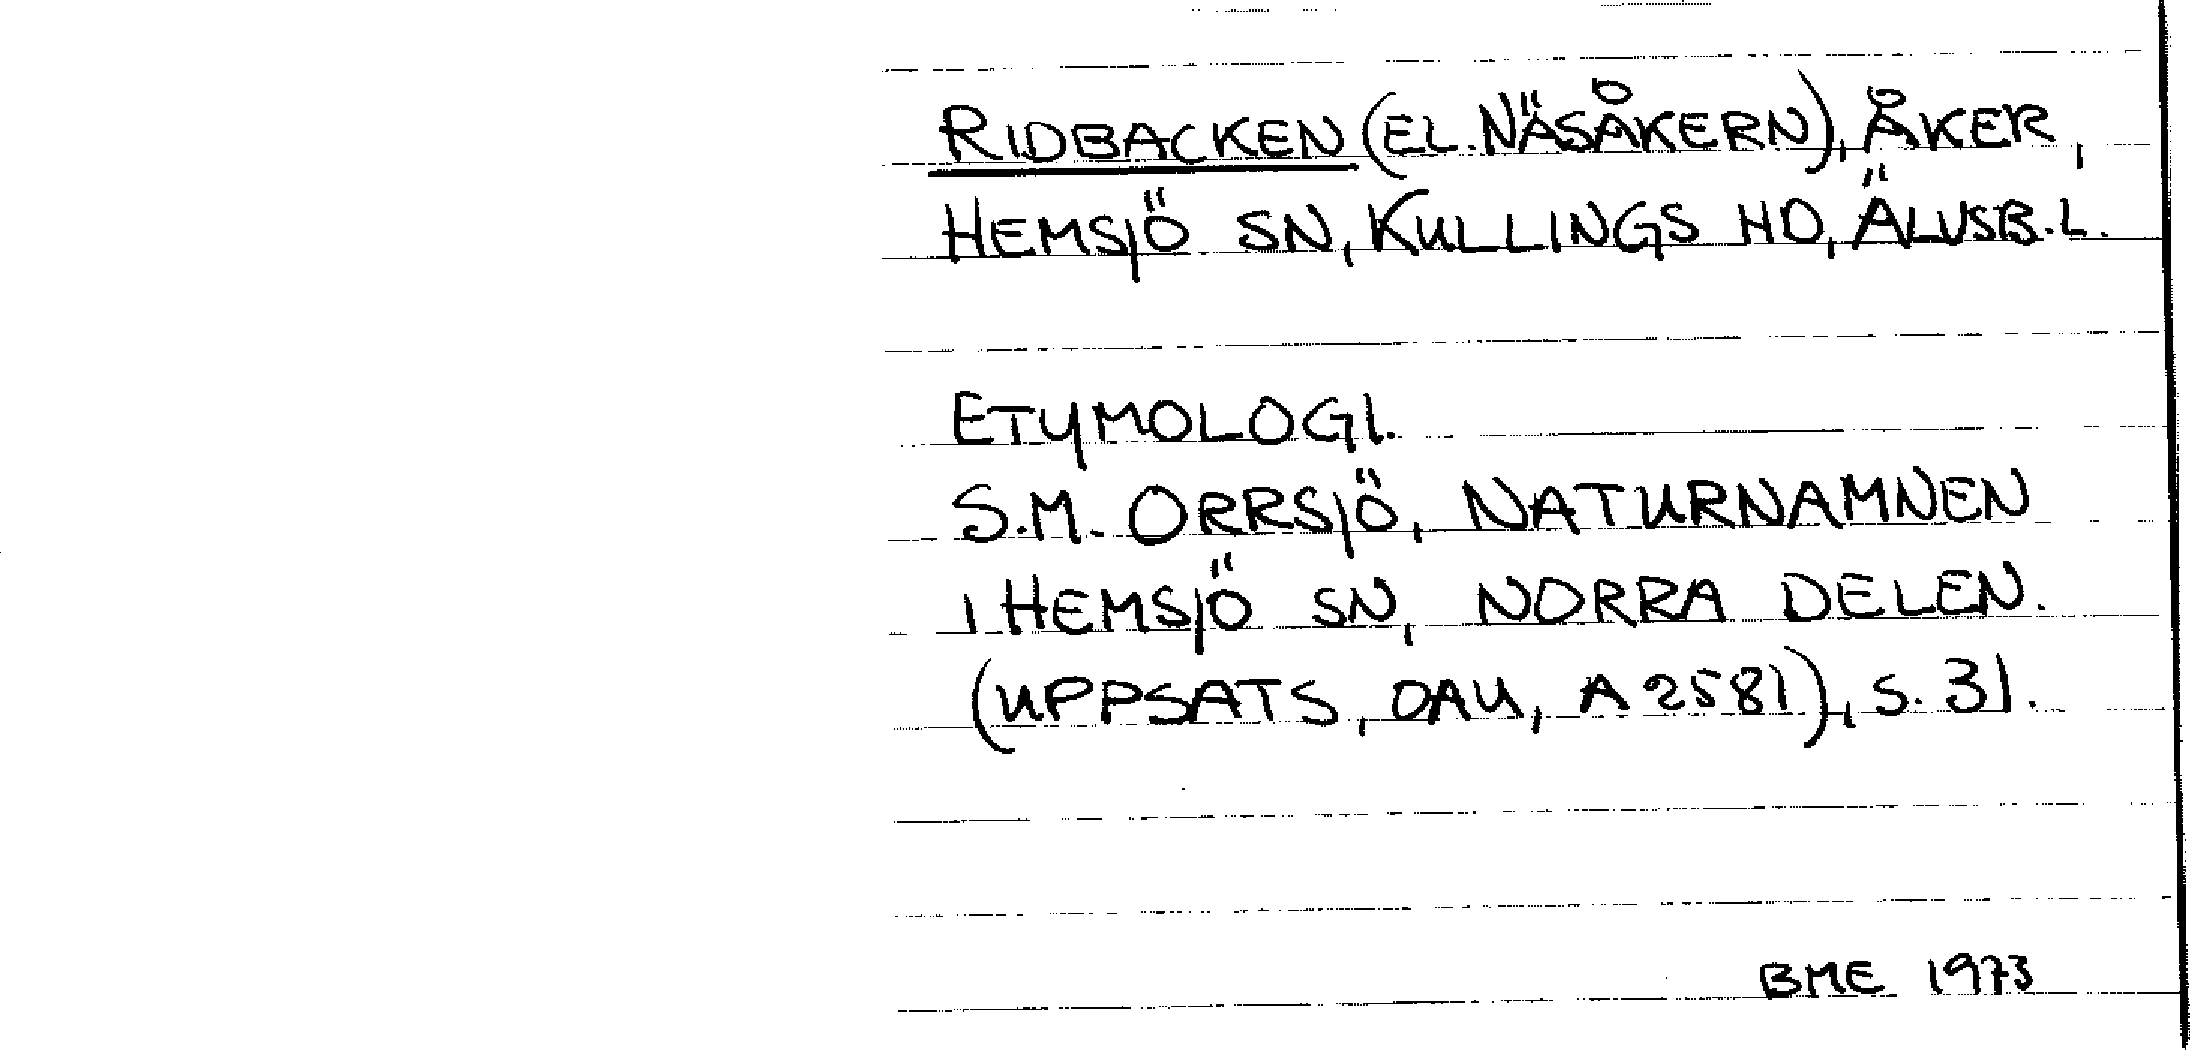 RIDBACKEN (EL. NÄSÅKERN), ÅKER,
HEMSJÖ SN, KULLINGS HD, ÄLVSB.L.
ETYMOLOGI.
S.M. ORRSJÖ, NATURNAMNEN
I HEMSJÖ SN, NORRA DELEN.
(UPPSATS, OAU, A 2581), S. 31.
BME 1973